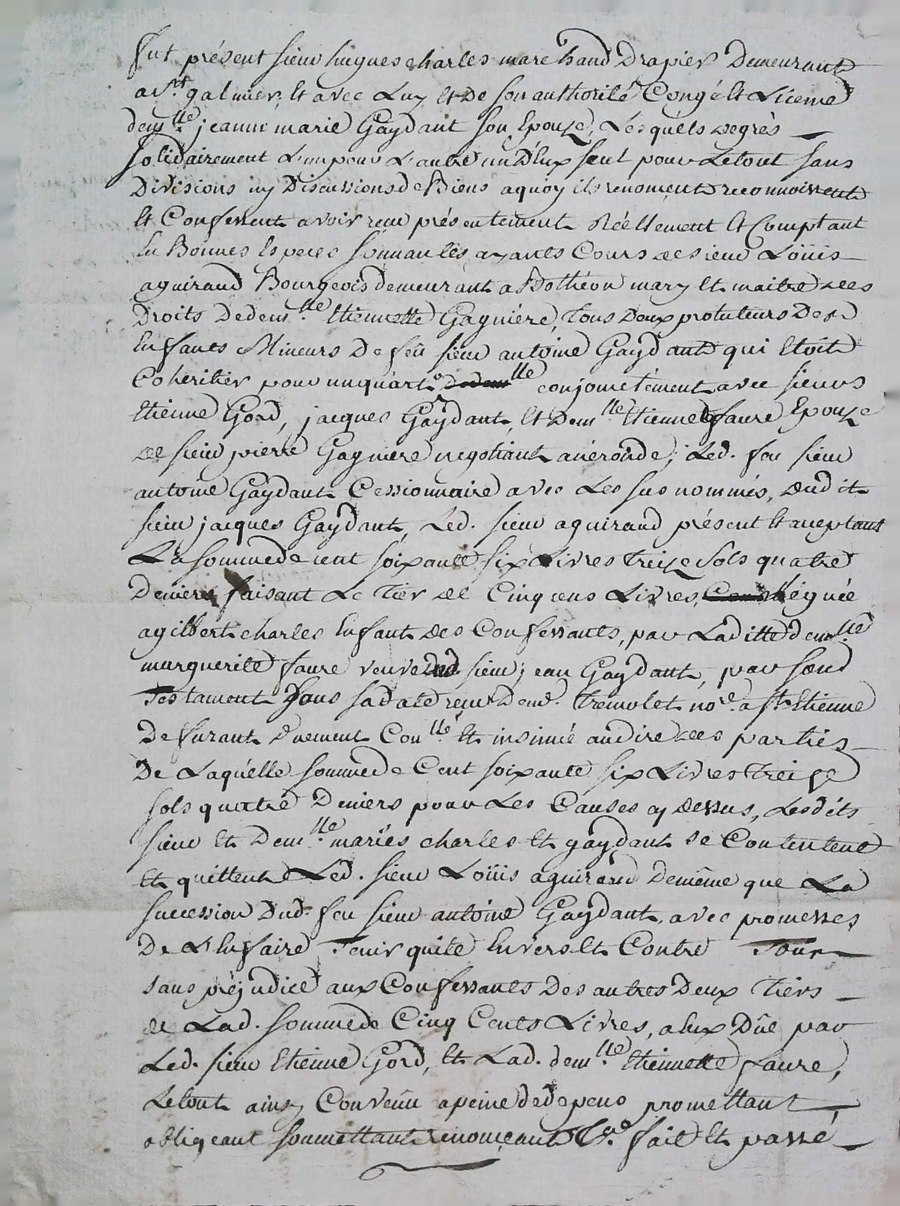 fut présent sieur hugues charles marchand Drapier Demeurant
a St. galmier, et avec Luy et De son authorité Congé et Licence
dem.lle jeanne marie Gaydant son Epouze, Lesquels degrés
solidairement L'un pour L'autre un D'Eux seul pour Le tout sans
Divisions ny Discussions de Biens a quoy ils renoncent reconnoissent
et Confessent avoir reçu présentement Réellement et Comptant
En Bonnes Especes sonnantes, ayants Cours de sieur Loüis
aguiraud Bourgeois demeurant a Bothéon mary et maitre des
Droits De dem.lle Etiennette Gagniere, tous deux protuteurs Des
Enfants Mineurs De feu sieur antoine Gaydant qui Etoit
Coheritier pour un quart conjointement avec sieurs
Etienne Gord, jacques Gaydant, et Dem.lle Etiennette faure Epouze
de sieur pierre Gagniere negotiant a nérónde; Led. feu sieur
antoine Gaydant Cessionnaire avec Les sus nommés, dudit
sieur jacques Gaydant, Led. sieur aguiraud présent et acceptant
La somme de cent soixante six Livres treize sols quatre
Deniers faisant Le Tier de Cinq cens Livres, Léguée
a gilbert charles Enfant des Confessants, par Laditte dem.lle
marguerite faure veuve dud. sieur jean Gaydant, par son d.
Testament sous sa date reçu De me. Tremolet no.re a St. Etienne
De furant Duement Con.llé et insinué au dire des parties
De Laquelle somme de Cent soixante six Livres treize
sols quatre Deniers pour Les Causes cy dessus, Lesdits
sieur et Dem.lle mariés charles et gaydant se Contentent
et quittent Led. sieur Loüis aguiraud De même que La
succession Dud. feu sieur antoine Gaydant, avec promesses
De L'En faire Tenir quite Envers et Contre Tous
sans préjudice aux Confessants Des autres Deux Tiers
de Lad. somme de Cinq Cents Livres, a Eux Dûe par
Led. sieur Etienne Gord, et Lad. dem.lle Etiennette faure,
Le tout ainsy Convenu a peine de depens promettant
obligeant soumettant renonçant &a. fait et passé